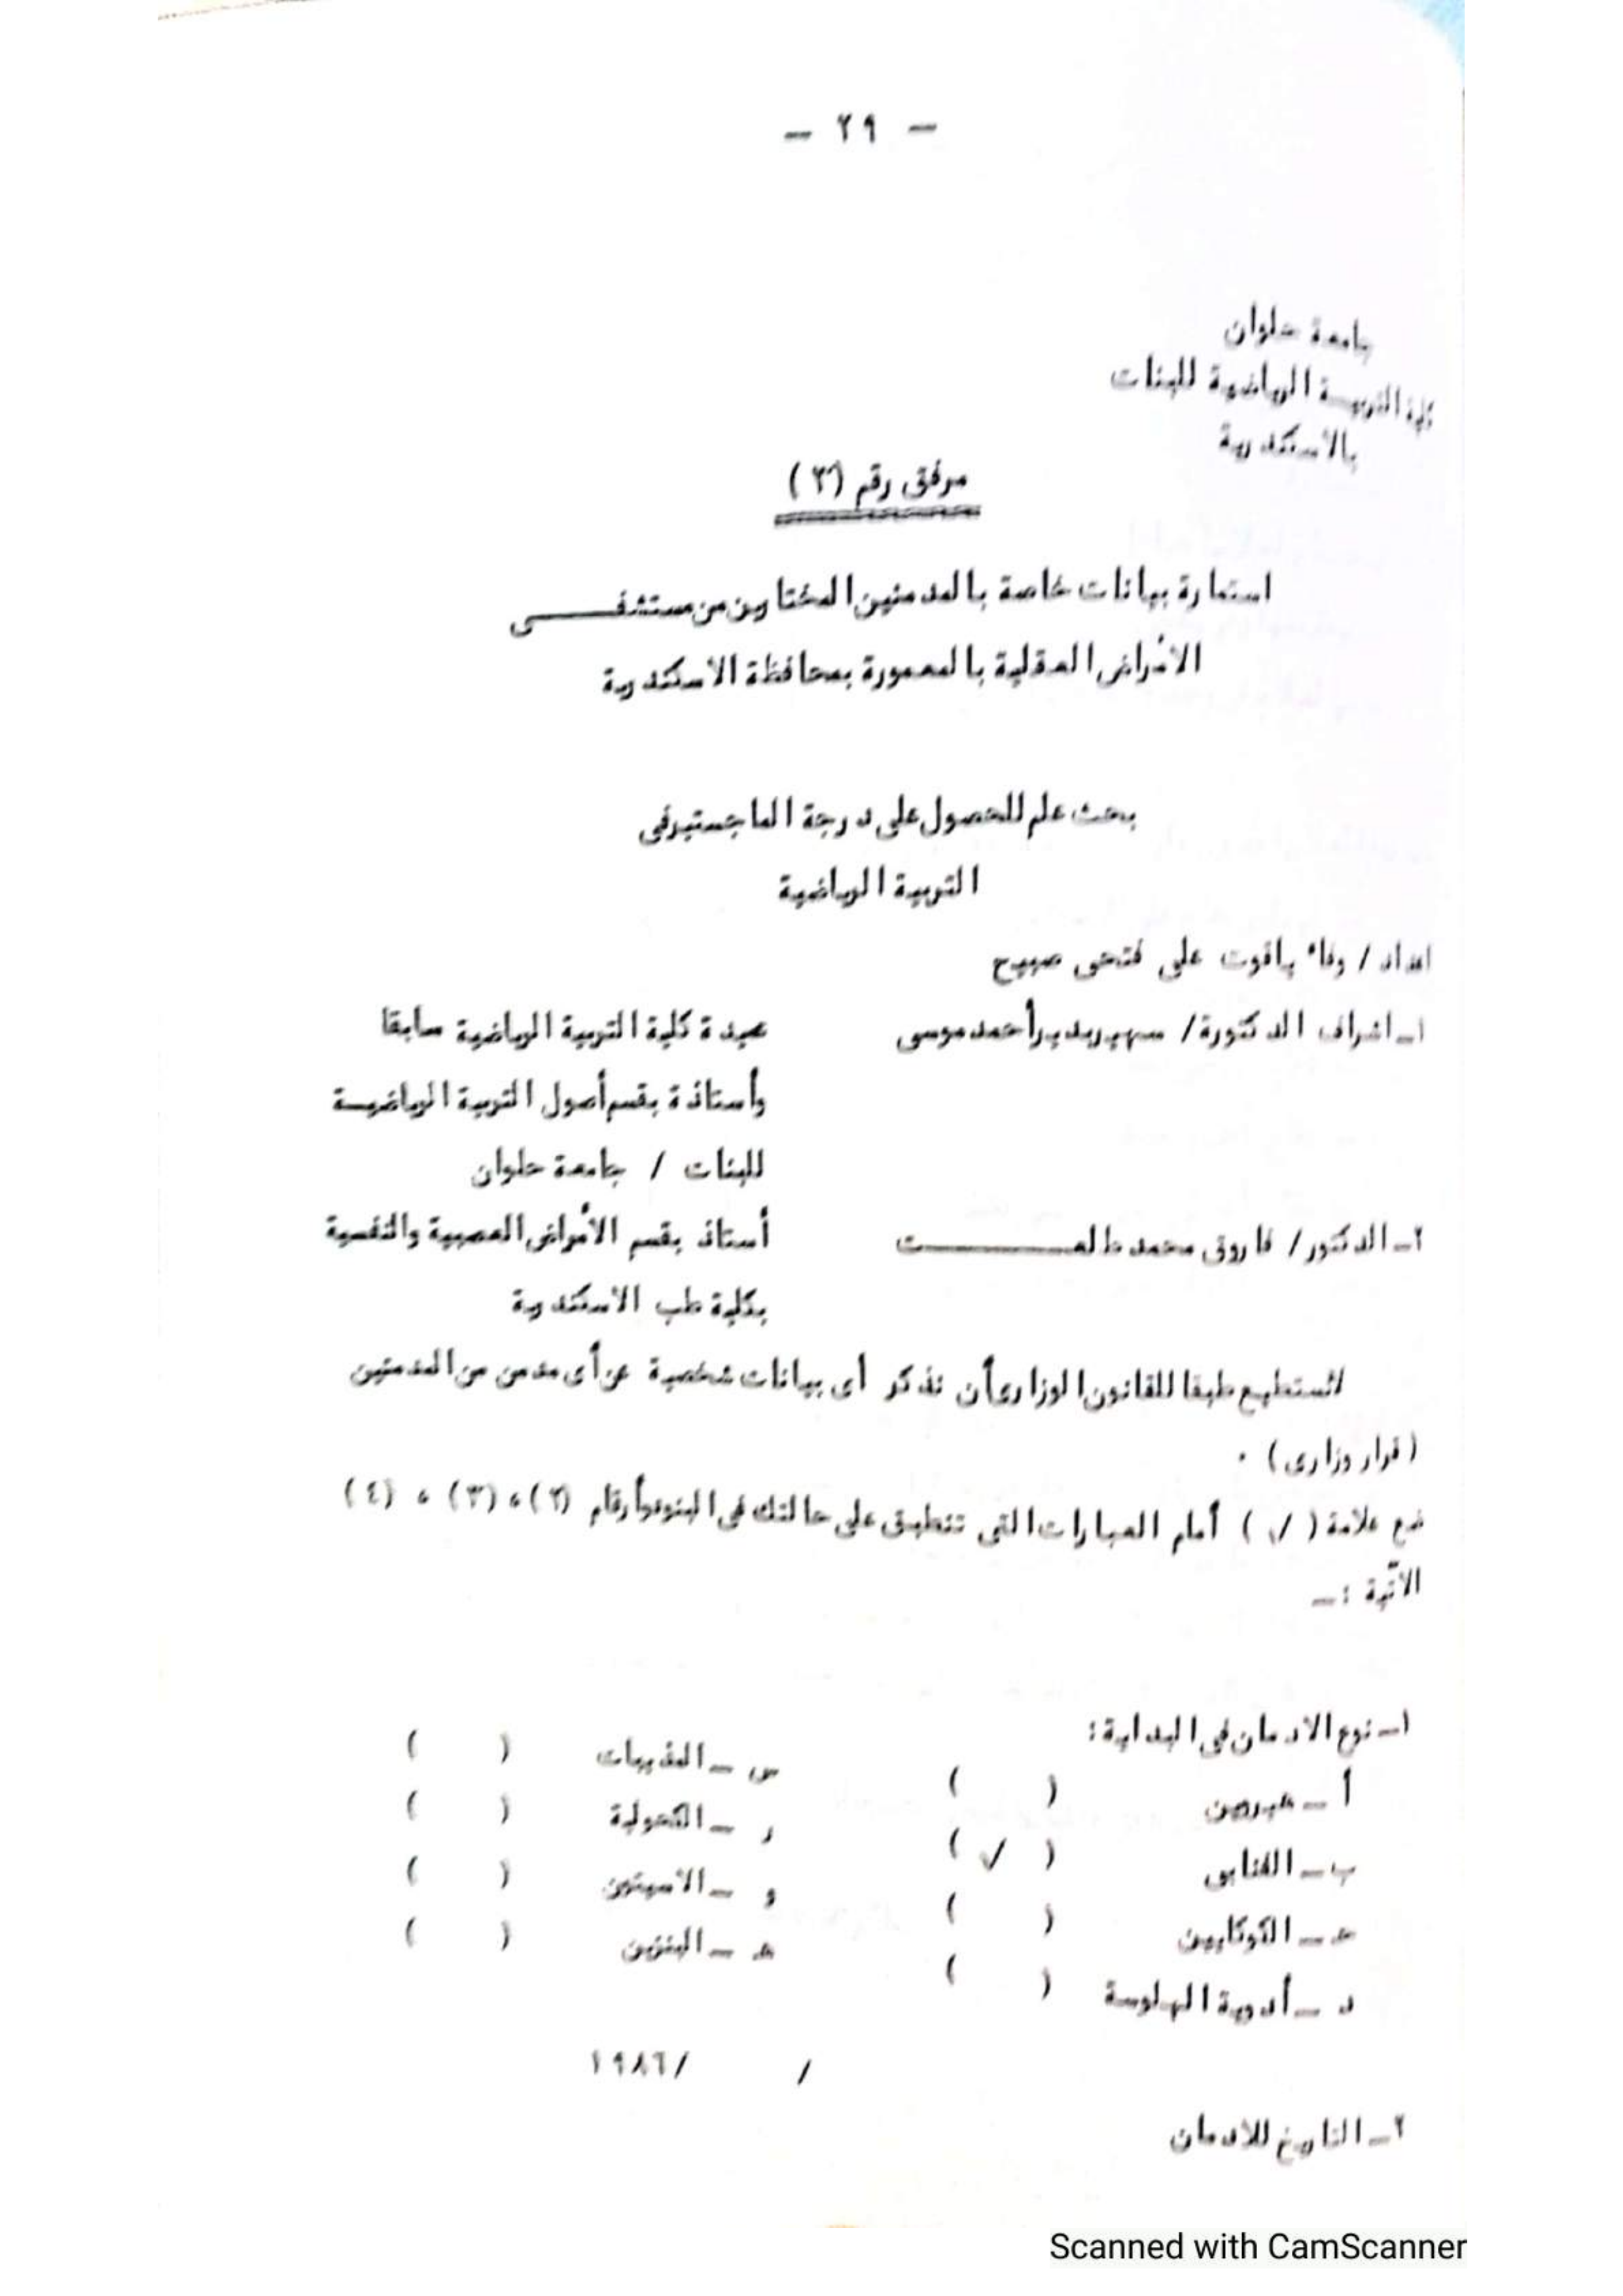 - ٢٩ -
جامعة حلوان
كلية التربية الرياضية للبنات
بالاسكندرية
مرفق رقم (٣)
استمارة بيانات خاصة بالمدمنين المختارين من مستشفى
الأمراض العقلية بالمعمورة بمحافظة الاسكندرية
بحث علم للحصول على درجة الماجستير فى
التربية الرياضية
اعداد / وفاء ياقوت على فتحى صبيح
١- اشراف الدكتورة / سهير بدير أحمد موسى عميدة كلية التربية الرياضية سابقا
وأستاذة بقسم أصول التربية الرياضية
للبنات / جامعة حلوان
٢- الدكتور / فاروق محمد طلعت أستاذ بقسم الأمراض العصبية والنفسية
بكلية طب الاسكندرية
لانستطيع طبقا للقانون الوزارى أن نذكر أى بيانات شخصية عن أى مدمن من المدمنين
(قرار وزارى) .
ضع علامة ( √ ) أمام العبارات التى تنطبق على حالتك فى البنود أرقام (٢) ، (٣) ، (٤)
الآتية :-
١- نوع الادمان فى البداية :
أ - هيروين ( ) س - المذيبات ( )
ب - القنابى ( √ ) ر - الكحولية ( )
حـ - الكوكايين ( ) و - الاسيتون ( )
د - أدوية الهلوسة ( ) هـ - البنزين ( )
/ /١٩٨٦
٢- التاريخ للادمان
Scanned with CamScanner